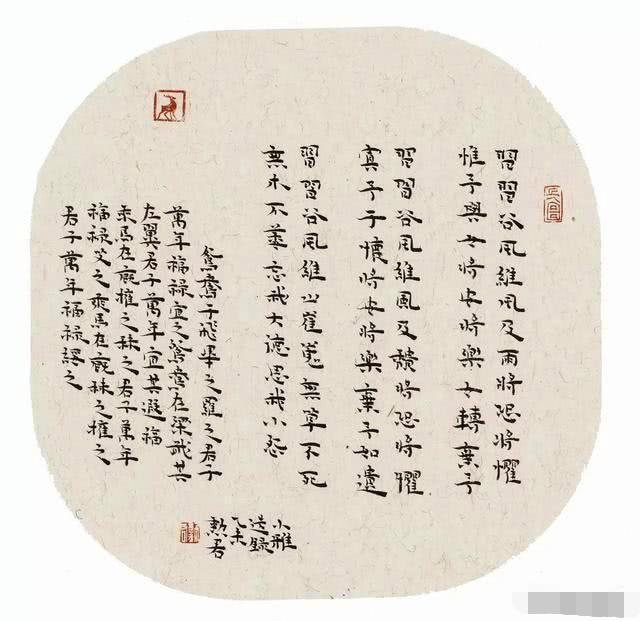 習習谷風維風及雨將恐將懼
惟予與女將安將樂女轉棄予
習習谷風維風及頹將恐將懼
寘予于懷將安將樂棄予如遺
習習谷風維山崔嵬無草不死
無木不萎忘我大德思我小怨
鴛鴦于飛畢之羅之君子
萬年福祿宜之鴛鴦在梁戢其
左翼君子萬年宜其遐福
乘馬在廄摧之秣之君子萬年
福祿艾之乘馬在廄秣之摧之
君子萬年福祿綏之
小雅
選錄
乙未
君